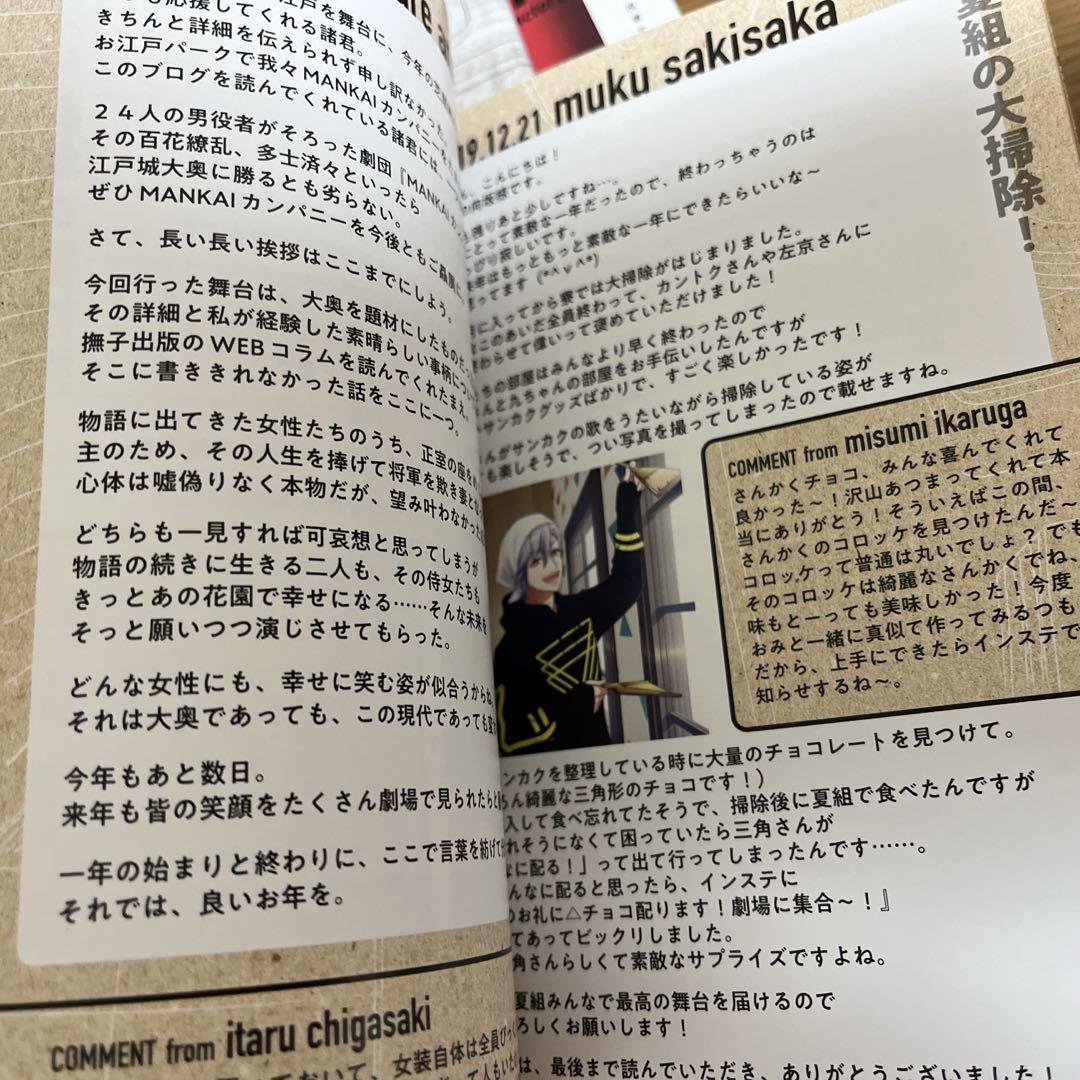 江戸を舞台に、今年の
も応援してくれる諸君。
きちんと詳細を伝えられず申し訳なかった
お江戸パークで我々MANKAIカンパニーを
このブログを読んでくれている諸君には、
２４人の男役者がそろった劇団『MANKAIカ
その百花繚乱、多士済々といったら
江戸城大奥に勝るとも劣らない。
ぜひMANKAIカンパニーを今後ともご贔屓に
さて、長い長い挨拶はここまでにしよう。
今回行った舞台は、大奥を題材にしたものだっ
その詳細と私が経験した素晴らしい事柄につい
撫子出版のWEBコラムを読んでくれたまえ。
そこに書ききれなかった話をここに一つ。
物語に出てきた女性たちのうち、正室の座を
主のため、その人生を捧げて将軍を欺き妻と
心体は嘘偽りなく本物だが、望み叶わなかった
どちらも一見すれば可哀想と思ってしまうが
物語の続きに生きる二人も、その侍女たちも
きっとあの花園で幸せになる……そんな未来を
そっと願いつつ演じさせてもらった。
どんな女性にも、幸せに笑む姿が似合うからね
それは大奥であっても、この現代であっても変
今年もあと数日。
来年も皆の笑顔をたくさん劇場で見られたらと
一年の始まりと終わりに、ここで言葉を紡げて
それでは、良いお年を。
COMMENT from itaru chigasaki
女装自体は全員びっく
19.12.21 muku sakisaka
夏組の大掃除！
、こんにちは！
残りあと少しですね…。
とって素敵な一年だったので、終わっちゃうのは
ぴり寂しいです。
年はもっともっと素敵な一年にできたらいいな～
ってます（*^∨^*）
に入ってから寮では大掃除がはじまりました。
このあいだ全員終わって、カントクさんや左京さんに
わらせて偉いって褒めていただけました！
ちの部屋はみんなより早く終わったので
んと九ちゃんの部屋をお手伝いしたんですが
サンカクグッズばかりで、すごく楽しかったです！
んがサンカクの歌をうたいながら掃除している姿が
も楽しそうで、つい写真を撮ってしまったので載せますね。
COMMENT from misumi ikaruga
さんかくチョコ、みんな喜んでくれて
良かった～！沢山あつまってくれて本
当にありがとう！そういえばこの間、
さんかくのコロッケを見つけたんだ～
コロッケって普通は丸いでしょ？でも
そのコロッケは綺麗なさんかくでね、
味もとーっても美味しかった！今度
おみと一緒に真似て作ってみるつも
だから、上手にできたらインステで
知らせするね～。
ンカクを整理している時に大量のチョコレートを見つけて。
ちん綺麗な三角形のチョコです！）
入して食べ忘れてたそうで、掃除後に夏組で食べたんですが
れそうになくて困っていたら三角さんが
なに配る！」って出て行ってしまったんです……。
んなに配ると思ったら、インステに
のお礼に△チョコ配ります！劇場に集合～！』
てあってビックリしました。
角さんらしくて素敵なサプライズですよね。
夏組みんなで最高の舞台を届けるので
ろしくお願いします！
は、最後まで読んでいただき、ありがとうございました！